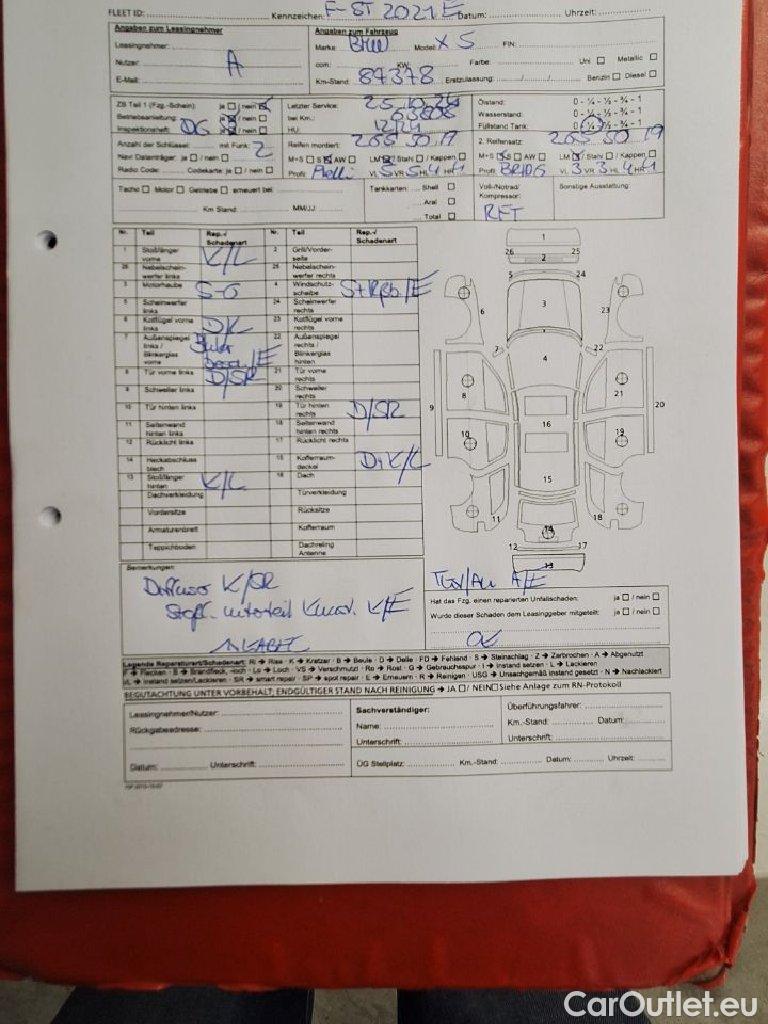 FLEET ID: Kennzeichen: F-ST 2021 E Datum: Uhrzeit:
Angaben zum Leasingnehmer
Leasingnehmer:
Nutzer: A
E-Mail:
Angaben zum Fahrzeug
Marke: BMW Model: X5 FIN:
ccm: KW: Farbe: Uni Metallic
Km-Stand: 87378 Erstzulassung: Benzin Diesel
ZB Teil 1 (Fzg.-Schein): ja / nein
Betriebsanleitung: ja / nein
Inspektionsheft: ja / nein
Letzter Service: 25.10.24
bei Km.:
HU: 12/24
Ölstand: 0 - ¼ - ½ - ¾ - 1
Wasserstand: 0 - ¼ - ½ - ¾ - 1
Füllstand Tank: 0 - ¼ - ½ - ¾ - 1
Anzahl der Schlüssel: mit Funk: 2
Navi Datenträger: ja / nein
Radio Code: Codekarte: ja / nein
Reifen montiert: 255 50 19
M+S S AW LM / Stahl / Kappen
Profil: Pirelli VL 5 VR 5 HL 4 HR 4
2. Reifensatz: 255 50 19
M+S S AW LM / Stahl / Kappen
Profil: BRIDG VL 3 VR 3 HL 4 HR 4
Tacho Motor Getriebe erneuert bei
Km Stand: MM/JJ
Tankkarten: Shell
Aral
Total
Voll-/Notrad/
Kompressor:
RFT
Sonstige Ausstattung:
Nr. Teil Rep.-/ Schadenart Nr. Teil Rep.-/ Schadenart
1 Stoßfänger vorne K/L 2 Grill/Vorderseite
26 Nebelscheinwerfer links 25 Nebelscheinwerfer rechts
3 Motorhaube 4 Windschutzscheibe
5 Scheinwerfer links 24 Scheinwerfer rechts
6 Kotflügel vorne links DK 23 Kotflügel vorne rechts
7 Außenspiegel links / Blinkerglas vorne 22 Außenspiegel rechts / Blinkerglas hinten
8 Tür vorne links D/SR 21 Tür vorne rechts
9 Schweller links 20 Schweller rechts
10 Tür hinten links 19 Tür hinten rechts D/SR
11 Seitenwand hinten links 18 Seitenwand hinten rechts
12 Rücklicht links 17 Rücklicht rechts
14 Heckabschlussblech 15 Kofferraumdeckel D,K/L
13 Stoßfänger hinten K/L 16 Dach
Dachverkleidung Türverkleidung
Vordersitze Rücksitze
Armaturenbrett Kofferraum
Teppichboden Dachreling Antenne
1
26 25
2
5 24
6 3 23
7 22
4
8 21
9 20
10 16 19
15
11 18
14
12 17
13
Bemerkungen:
Diffusor K/SR
Hat das Fzg. einen reparierten Unfallschaden: ja / nein
Wurde dieser Schaden dem Leasinggeber mitgeteilt: ja / nein
Legende Reparaturart/Schadenart: R → Riss - K → Kratzer - B → Beule - D → Delle - FD → Fehlend - S → Steinschlag - Z → Zerbrochen - A → Abgenutzt
F → Flecken - B → Brandfleck, -loch - Lo → Loch - VS → Verschmutzt - Ro → Rost - G → Gebrauchsspur - I → Instand setzen - L → Lackieren
IL → Instand setzen/Lackieren - SR → smart repair - SP → spot repair - E → Erneuern - R → Reinigen - USG → Unsachgemäß instand gesetzt - N → Nachlackiert
BEGUTACHTUNG UNTER VORBEHALT; ENDGÜLTIGER STAND NACH REINIGUNG → JA / NEIN Siehe Anlage zum RN-Protokoll
Leasingnehmer/Nutzer:
Rückgabeadresse:
Datum: Unterschrift:
Sachverständiger:
Name:
Unterschrift:
Überführungsfahrer:
Km.-Stand: Datum:
Unterschrift:
ÜG Stellplatz: Km.-Stand: Datum: Uhrzeit:
CarOutlet.eu